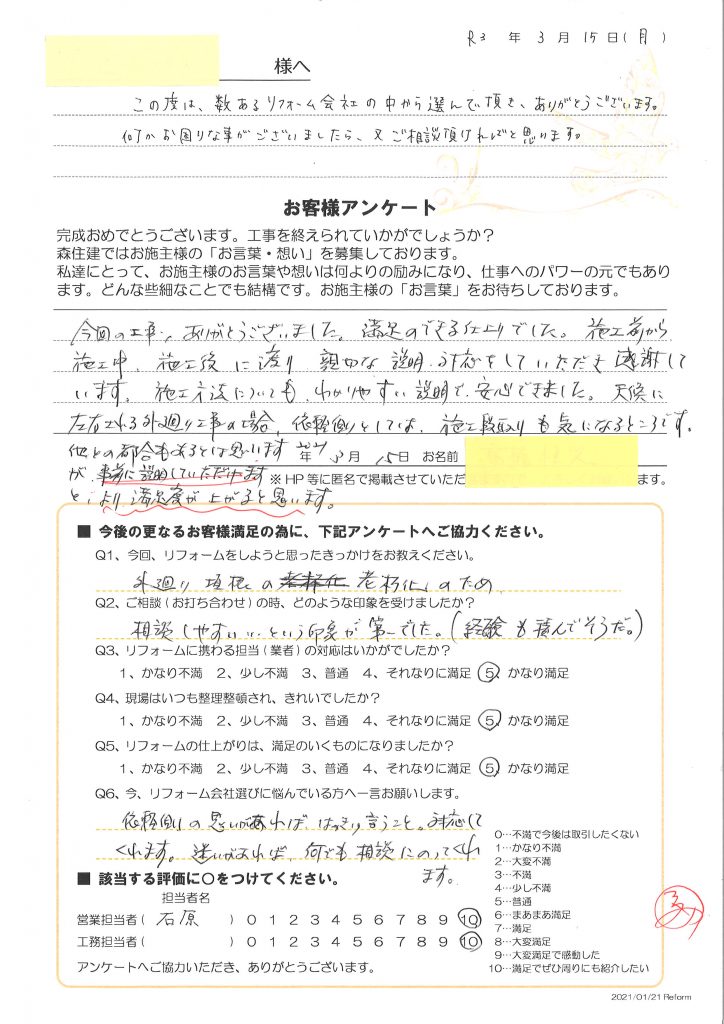 R3 年 3 月 15 日(月)
様へ
この度は、数あるリフォーム会社の中から選んで頂き、ありがとうございます。
何かお困りな事がございましたら、又ご相談頂ければと思います。
お客様アンケート
完成おめでとうございます。工事を終えられていかがでしょうか?
森住建ではお施主様の「お言葉・想い」を募集しております。
私達にとって、お施主様のお言葉や想いは何よりの励みになり、仕事へのパワーの元でもあり
ます。どんな些細なことでも結構です。お施主様の「お言葉」をお待ちしております。
今回の工事、ありがとうございました。満足のできる仕上りでした。施工前から
施工中、施工後に渡り 親切な説明、対応をしていただき感謝して
います。施工方法についても、わかりやすい説明で、安心できました。天候に
左右される外廻り工事の場合、依頼側としては、施工段取りも気になるところです。
他との都合もあるとは思います
2021年 3月 15日 お名前
が、事前に説明していただけます
※HP等に匿名で掲載させていただ ます。
と、より満足度が上がると思います。
■ 今後の更なるお客様満足の為に、下記アンケートへご協力ください。
Q1、今回、リフォームをしようと思ったきっかけをお教えください。
外廻り 垣根の 老朽化のため
Q2、ご相談(お打ち合わせ)の時、どのような印象を受けましたか?
相談しやすい…という印象が第一でした。(経験も積んでそうだ。)
Q3、リフォームに携わる担当(業者)の対応はいかがでしたか?
1、かなり不満 2、少し不満 3、普通 4、それなりに満足 5、かなり満足
Q4、現場はいつも整理整頓され、きれいでしたか?
1、かなり不満 2、少し不満 3、普通 4、それなりに満足 5、かなり満足
Q5、リフォームの仕上がりは、満足のいくものになりましたか?
1、かなり不満 2、少し不満 3、普通 4、それなりに満足 5、かなり満足
Q6、今、リフォーム会社選びに悩んでいる方へ一言お願いします。
依頼側の思いがあれば、はっきり言うこと。対応して
くれます。迷いがあれば、何でも相談にのってくれ
ます。
0…不満で今後は取引したくない
1…かなり不満
2…大変不満
3…不満
4…少し不満
5…普通
6…まあまあ満足
7…満足
8…大変満足
9…大変満足で感動した
10…満足でぜひ周りにも紹介したい
■ 該当する評価に○をつけてください。
担当者名
営業担当者( 石原 ) 0 1 2 3 4 5 6 7 8 9 10
工務担当者( ) 0 1 2 3 4 5 6 7 8 9 10
アンケートへご協力いただき、ありがとうございます。
2021/01/21 Reform